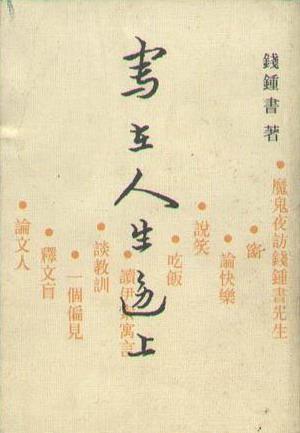 錢鍾書著
寫在人生邊上
●魔鬼夜訪錢鍾書先生
●窗
●論快樂
●說笑
●吃飯
●讀伊索寓言
●談教訓
●一個偏見
●釋文盲
●論文人